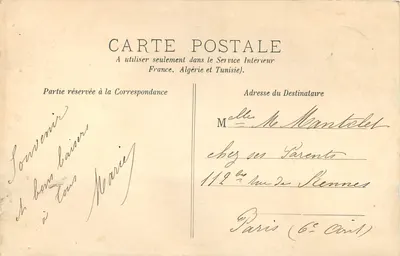 CARTE POSTALE
A utiliser seulement dans le Service Intérieur
France, Algérie et Tunisie).
Partie réservée à la Correspondance
Adresse du Destinataire
Souvenir
et bons baisers
à tous
Marie
Melle M. Mantelet
chez ses Parents
112 bis rue de Rennes
Paris (6e Arrt)